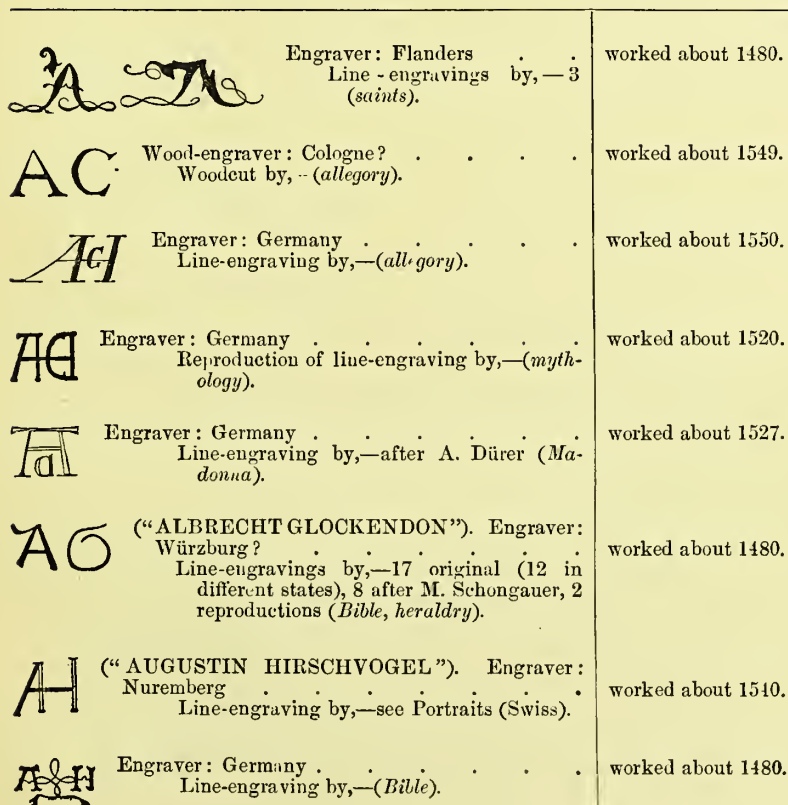 Engraver: Flanders . . worked about 1480.
Line-engravings by,—3
(saints).
AC Wood-engraver: Cologne? . . . . worked about 1549.
Woodcut by, -- (allegory).
Engraver: Germany . . . . . worked about 1550.
Line-engraving by,—(allegory).
Engraver: Germany . . . . . . worked about 1520.
Reproduction of line-engraving by,—(myth-
ology).
Engraver: Germany . . . . . . worked about 1527.
Line-engraving by,—after A. Dürer (Ma-
donna).
AG (“ALBRECHT GLOCKENDON”). Engraver:
Würzburg? . . . . . . worked about 1480.
Line-engravings by,—17 original (12 in
different states), 8 after M. Schongauer, 2
reproductions (Bible, heraldry).
AH (“AUGUSTIN HIRSCHVOGEL”). Engraver:
Nuremberg . . . . . . . worked about 1540.
Line-engraving by,—see Portraits (Swiss).
A H Engraver: Germany . . . . . . worked about 1480.
Line-engraving by,—(Bible).